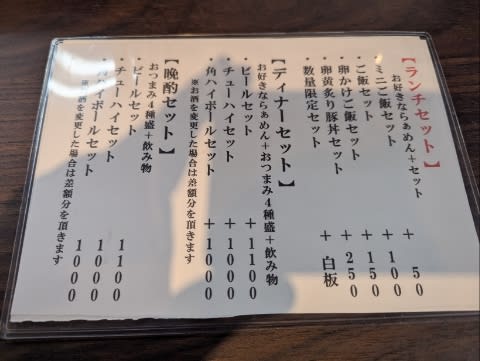 【ランチセット】
お好きならぁめん+セット
・ミニご飯セット +50
・ご飯セット +100
・卵かけご飯セット +150
・卵黄炙り豚丼セット +250
・数量限定セット +白板
【ディナーセット】
お好きならぁめん+おつまみ4種盛+飲み物
・ビールセット +1100
・チューハイセット +1000
・角ハイボールセット +1000
※お酒を変更した場合は差額分を頂きます
【晩酌セット】
おつまみ4種盛+飲み物
・ビールセット 1100
・チューハイセット 1000
ハイボールセット 1000
※お酒を変更した場合は差額分を頂きます